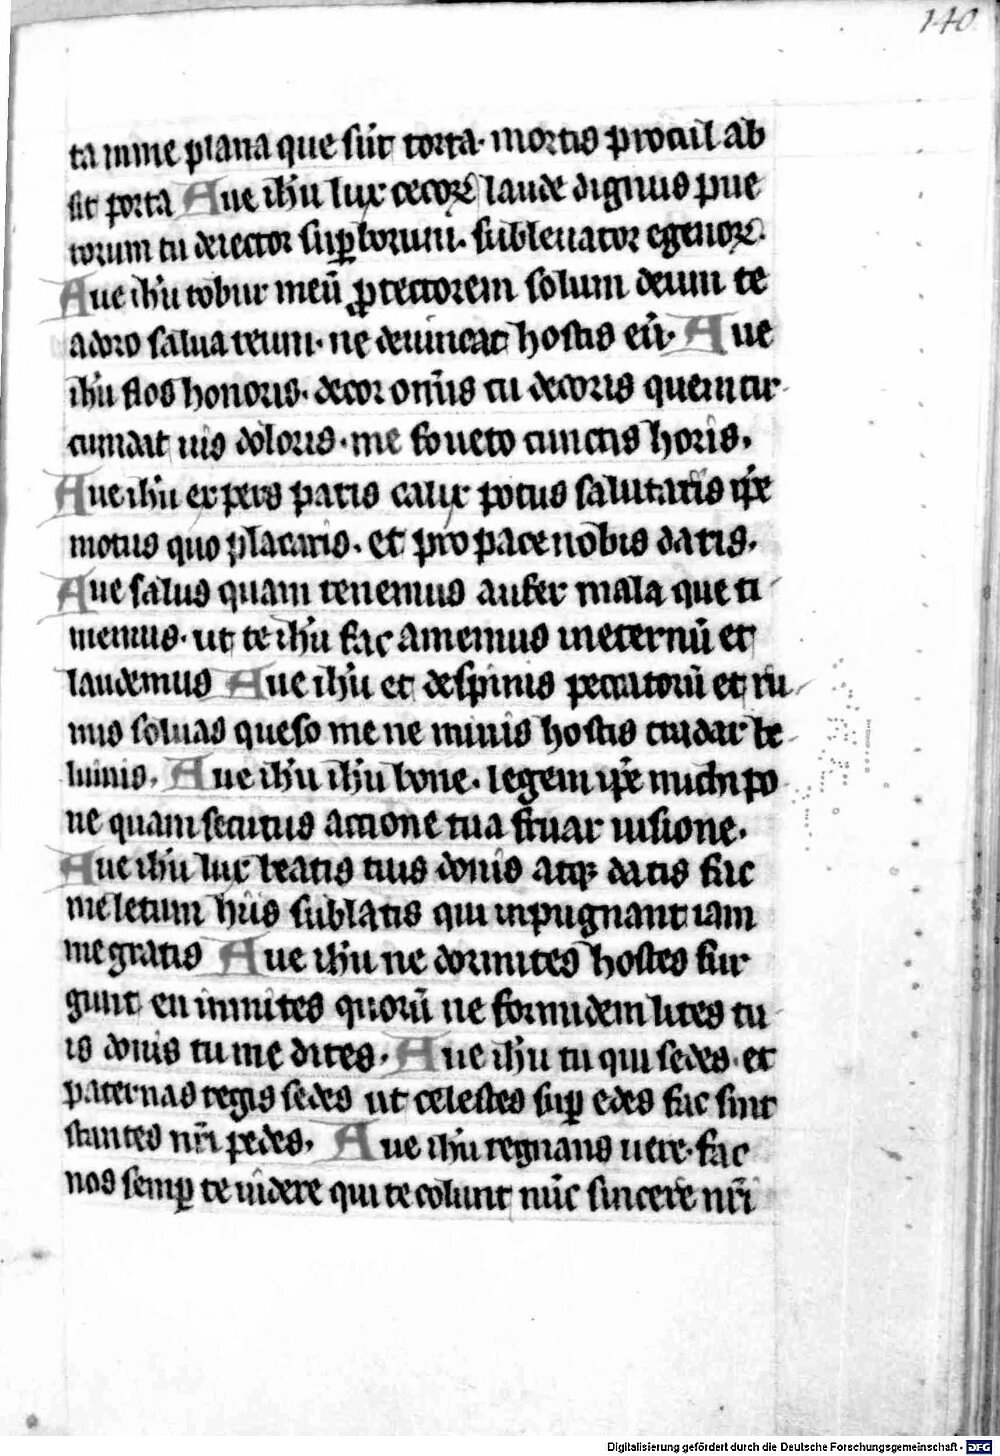 140
ta in me plana que sūt torta. mortis procul ab
sit porta Aue ihū lux cecorꝝ laude dignus pue
rorum tu deiector suꝑborum. subleuator egenorꝝ.
Aue ihū robur meū ꝓtectorem solum deum te
adoro salua reum. ne deuincat hostis eū. Aue
ihū flos honoris. decor om̄is tu decoris quem cir
cumdat uis doloris. me foueto cunctis horis.
Aue ihū expers paris calix potus salutaris xp̄e
motus quo placaris. et pro pace nobis daris.
Aue salus quam tenemus aufer mala que ti
memus. ut te ihū fac amemus in eternū et
laudemus Aue ihū et de spinis peccatorū et ru
inis soluas queso me ne minis hostis cludar be
luinis. Aue ihū ihū bone. legem xp̄e michi po
ne quam secutus accione tua fruar uisione.
Aue ihū lux beatis tuis donis atqꝫ datis fac
me letum hiis sublatis qui inpugnant iam
me gratis Aue ihū ne dormites hostes sur
gunt en inmites quorū ne formidem lites tu
is donis tu me dites. Aue ihū tu qui sedes. et
paternas regis sedes ut celestes suꝑ edes fac sint
stantes nr̄i pedes. Aue ihū regnans uere. fac
nos semꝑ te uidere qui te colunt nūc sincere nr̄i
Digitalisierung gefördert durch die Deutsche Forschungsgemeinschaft - DFG